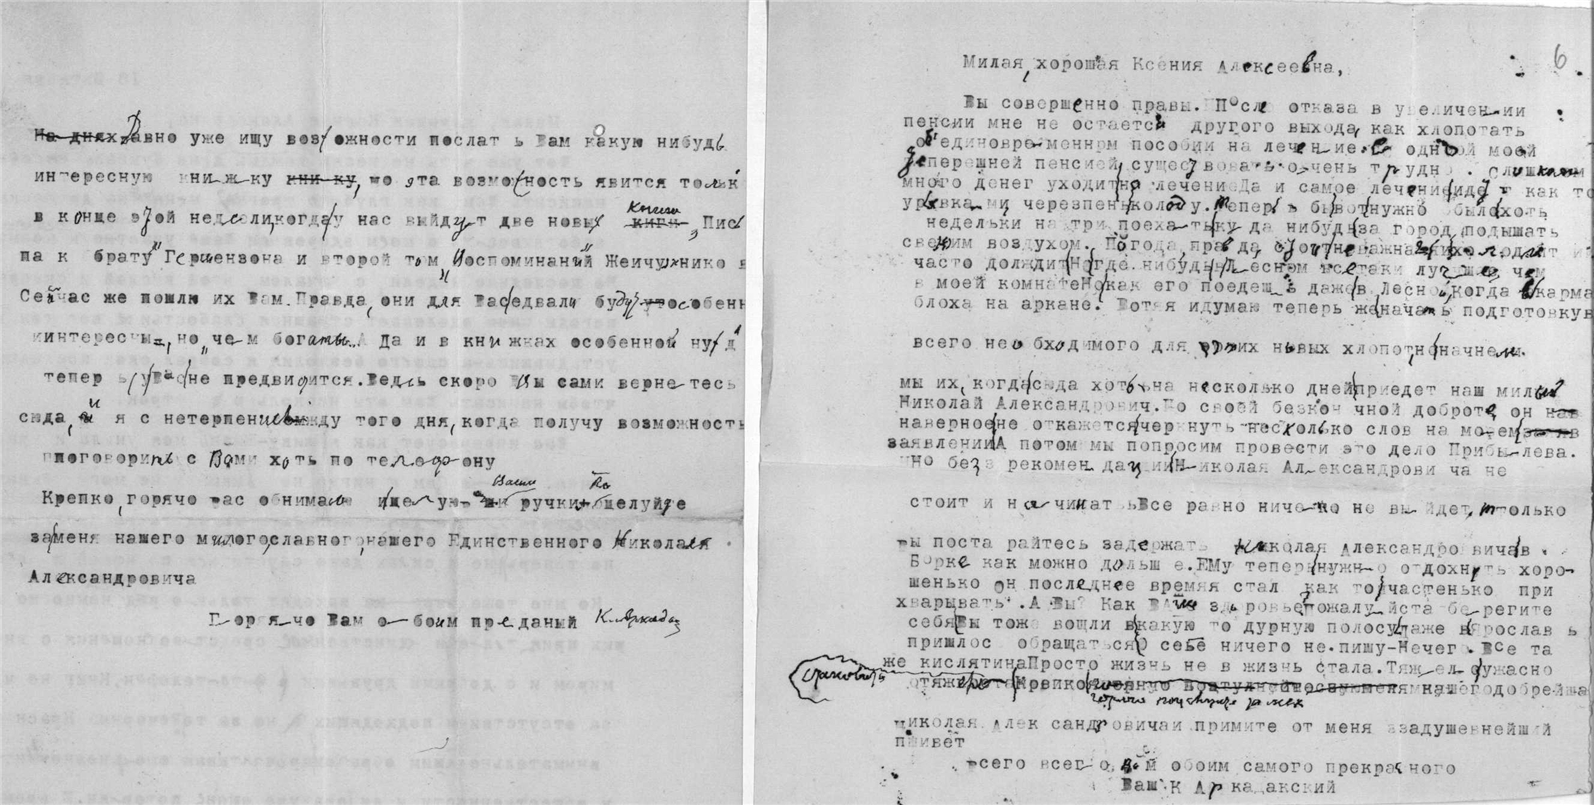 Давно уже ищу возможности послать Вам какую нибудь
интересную книжку но эта возможность явится тольк
в конце этой недели, когда у нас выйдут две новых книги „Пис
ма к брату" Гершензона и второй том „Воспоминаний"
Сейчас же пошлю их Вам. Правда, они для Вас едвали будут особенн
интересны, но, чем богаты. Да и в книжках особенной нужд
теперь у Вас не предвидится. Ведь скоро Вы сами вернетесь
сюда, и я с нетерпением жду того дня, когда получу возможность
поговорить с Вами хоть по телефону
Крепко, горячо вас обнимаю и целую Ваши ручки. Поцелуйте
за меня нашего милого, славного, нашего Единственного Николая
Александровича
Горячо Вам обоим преданый К. Аркадак
6
Милая, хорошая Ксения Алексеевна,
Вы совершенно правы. После отказа в увеличении
пенсии мне не остается другого выхода, как хлопотать
об единовременном пособии на лечение. одной моей
теперешней пенсией существовать очень трудно. слишком
много денег уходит на лечение. Да и самое лечение идет как то
урывками, через пень колоду. Теперь бы вот нужно было хоть
недельки на три поехать куда нибудь за город, подышать
свежим воздухом. Погода, правда, стоит неважная,
часто дождит. Но где нибудь в Лесном все таки лучше, чем
в моей комнате. Но как его поедешь даже в Лесной, когда в карма
блоха на аркане. Хотя и думаю теперь же начать подготовку
всего необходимого для этих новых хлопот, но начнем
мы их, когда сюда хоть на несколько дней приедет наш милый
Николай Александрович. По своей безконечной доброте, он
наверное не откажется черкнуть несколько слов на моем
заявлении А потом мы попросим провести это дело Прибылева.
Но без рекомендации Николая Александровича не
стоит и начинать. Все равно ничего не выйдет, только
вы постарайтесь задержать Николая Александровича в
Борке как можно дольше. Ему теперь нужно отдохнуть хоро-
шенько он последнее время стал как то частенько при
хварывать. А Вы? Как Ваше здоровье пожалуйста берегите
себя Вы тоже вошли в какую то дурную полосу, даже в Ярославь
пришлось обращаться. О себе ничего не пишу-Нечего. Все та
же кислятина Просто жизнь не в жизнь стала. Тяжело, ужасно
становится тяжело. Крепко нашего добрейша
горячо поцелуйте за меня
Николая Александровича и примите от меня задушевнейший
привет
всего всего вам обоим самого прекрасного
Ваш К Аркадакский